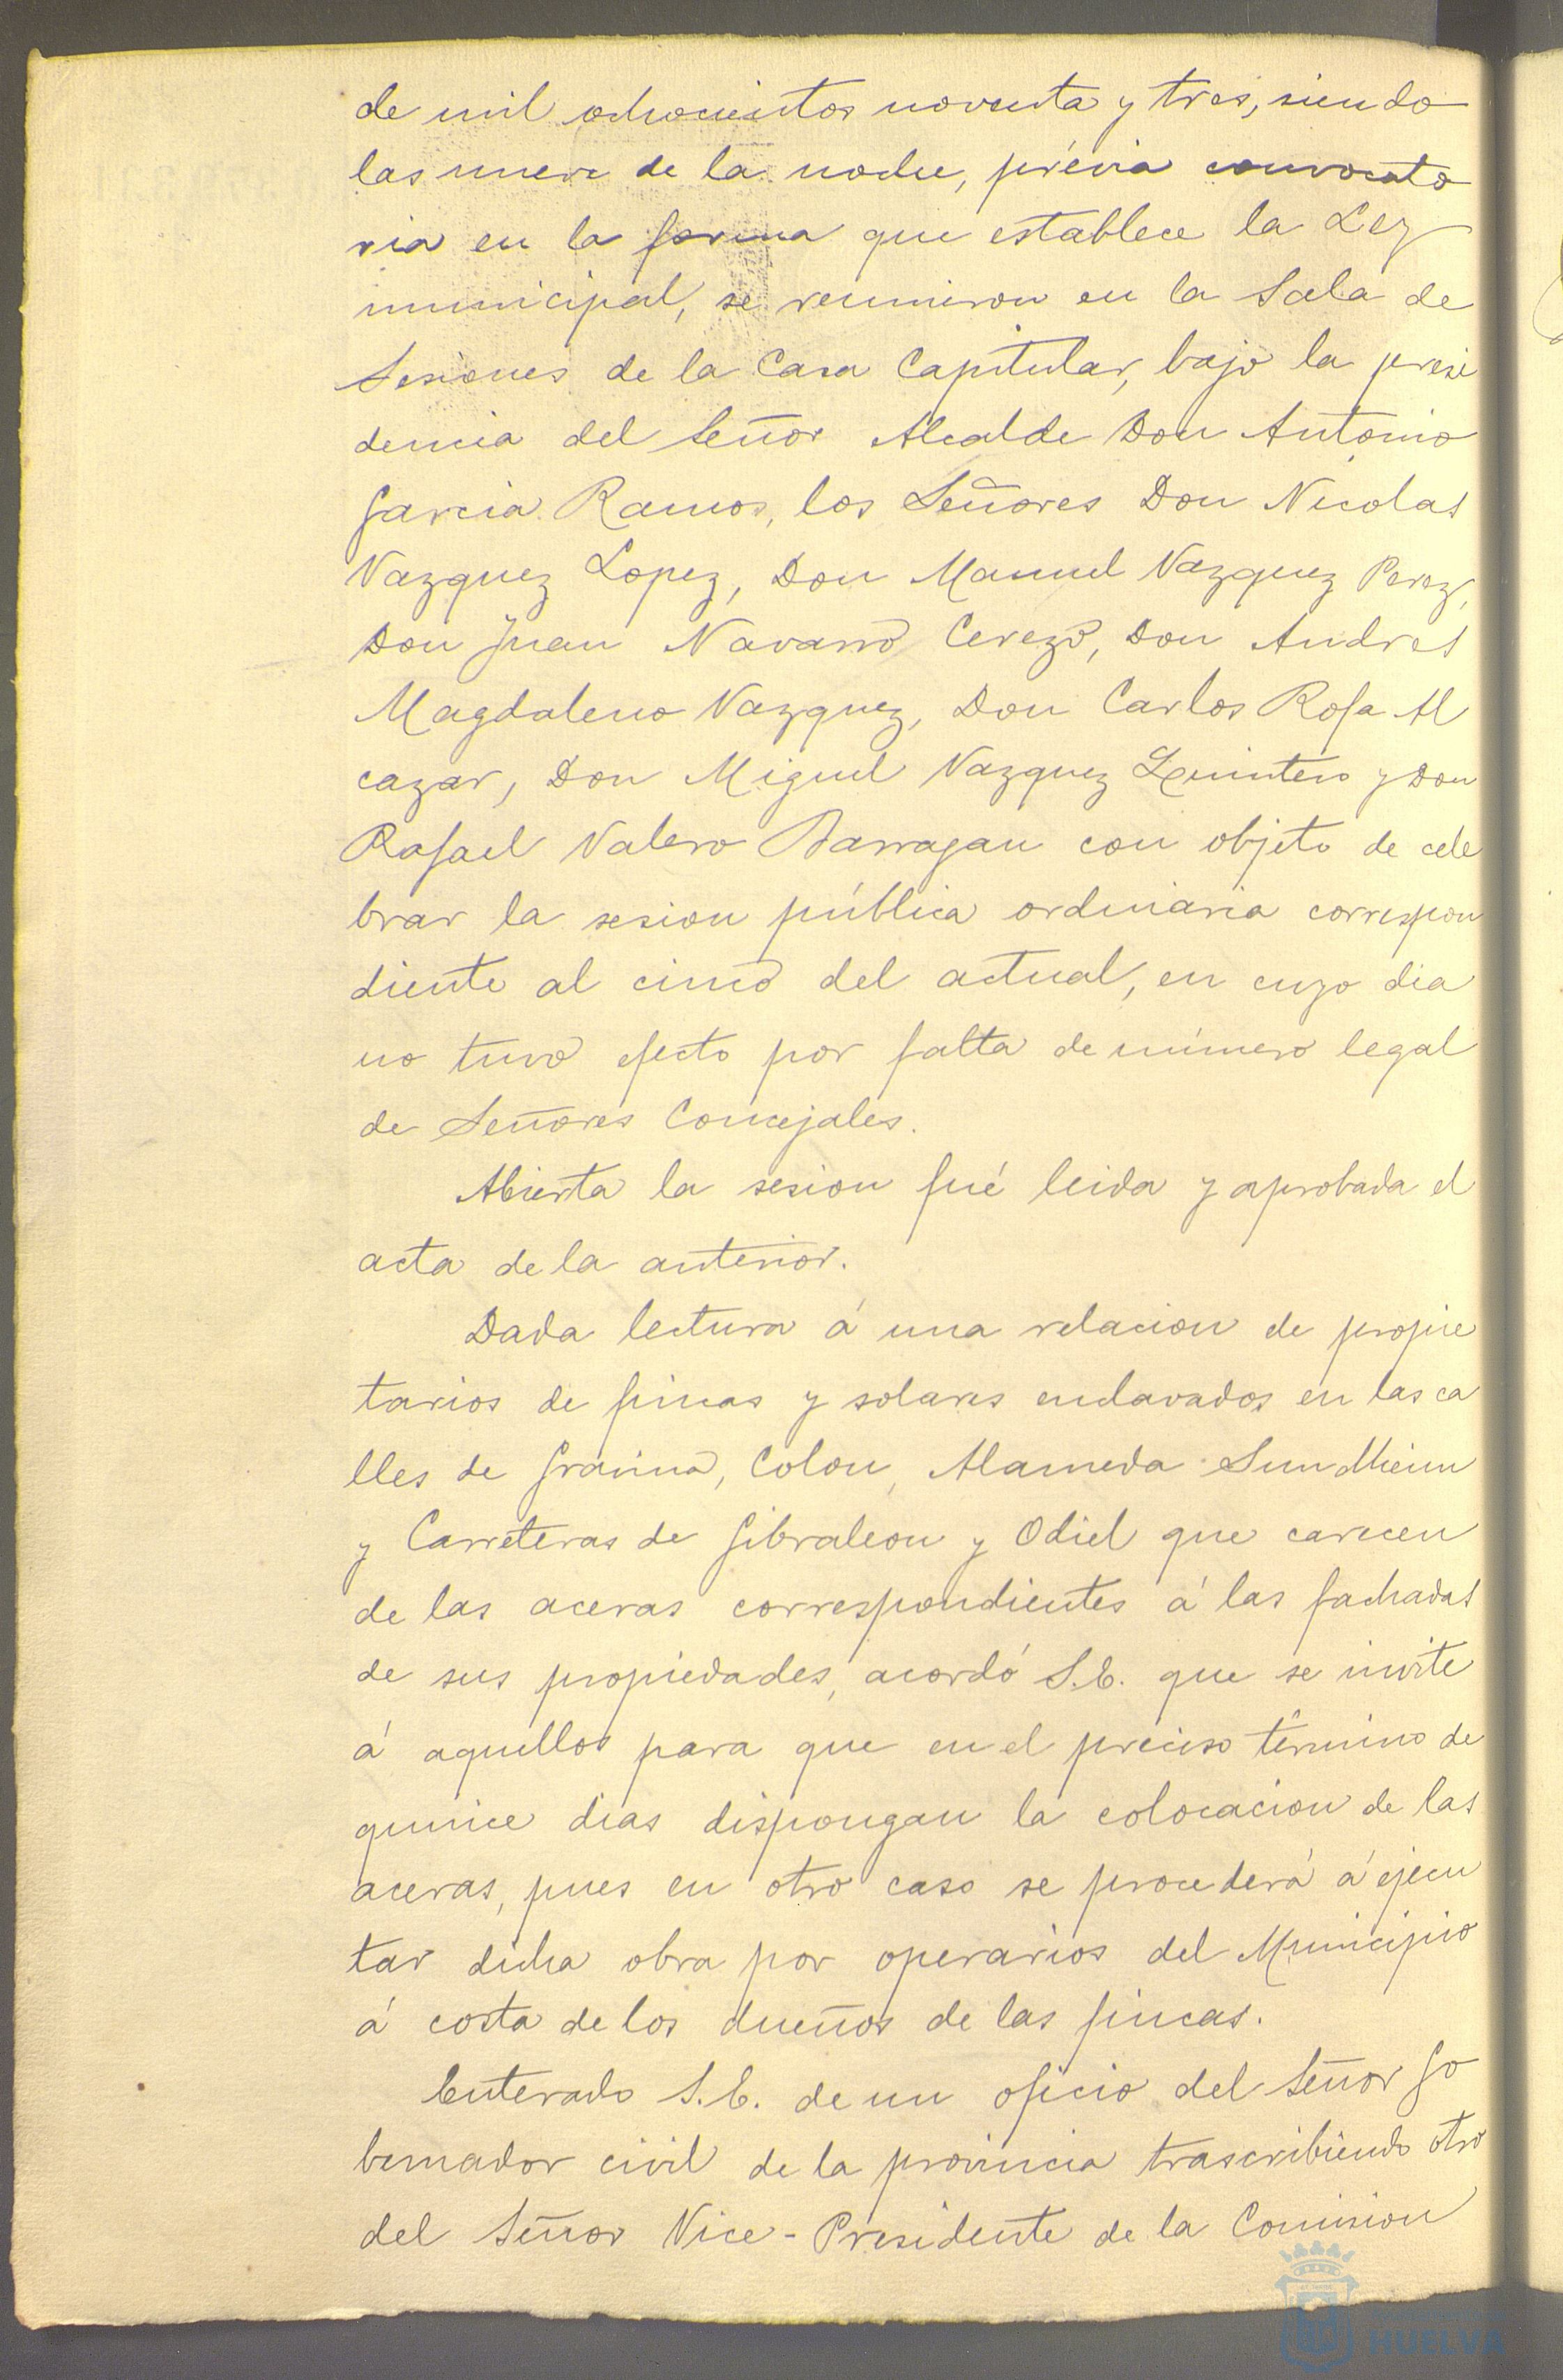 de mil ochocientos noventa y tres, siendo
las nueve de la noche, prévia convocato
ria en la forma que establece la Ley
municipal, se reunieron en la Sala de
Sesiones de la Casa Capitular, bajo la presi
dencia del Señor Alcalde Don Antonio
Garcia Ramos, los Señores Don Nicolas
Vazquez Lopez, Don Manuel Vazquez Perez,
Don Juan Navarro Cerezo, Don Andres
Magdaleno Vazquez, Don Carlos Rofa Al
cazar, Don Miguel Vazquez Quintero y Don
Rafael Valero Barragan con objeto de cele
brar la sesion pública ordinaria correspon
diente al cinco del actual, en cuyo dia
no tuvo efecto por falta de número legal
de Señores Concejales.
Abierta la sesion fué leida y aprobada el
acta de la anterior.
Dada lectura á una relacion de propie
tarios de fincas y solares enclavados en las ca
lles de Gravina, Colon, Alameda Sundheim
y Carreteras de Gibraleon y Odiel que carecen
de las aceras correspondientes á las fachadas
de sus propiedades, acordó S.E. que se invite
á aquellos para que en el preciso término de
quince dias dispongan la colocacion de las
aceras, pues en otro caso se procederá á ejecu
tar dicha obra por operarios del Municipio
á costa de los dueños de las fincas.
Enterado S.E. de un oficio del Señor Go
bernador civil de la provincia trascribiendo otro
del Señor Vice-Presidente de la Comision
HUELVA